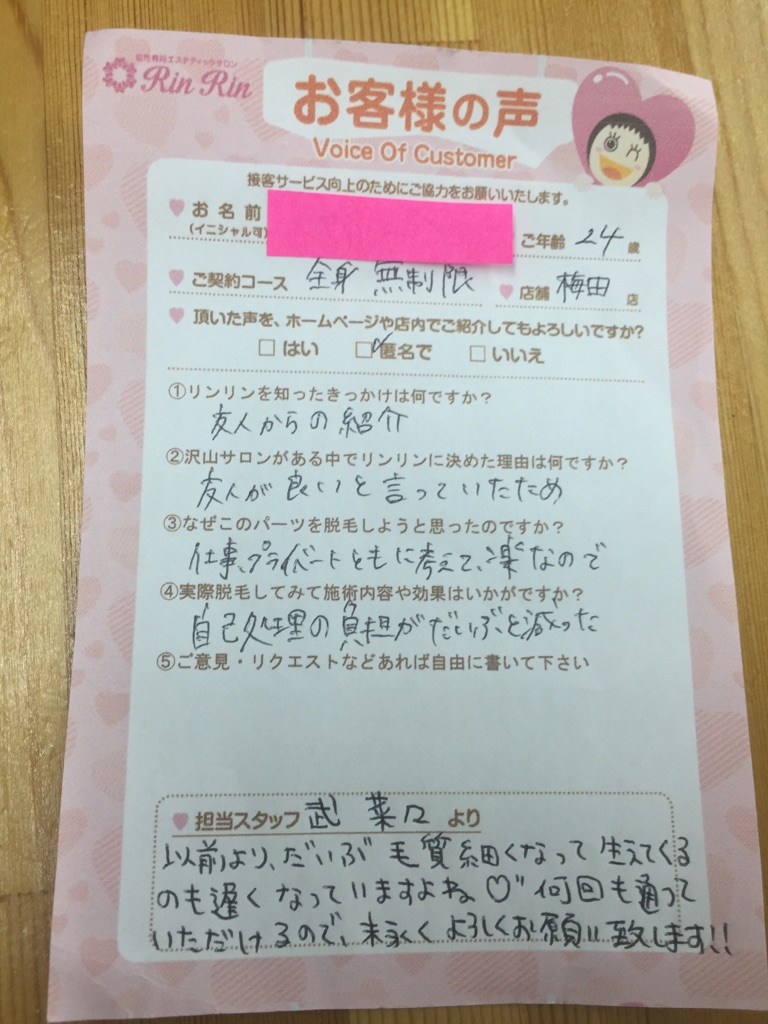 女性専用エステティックサロン
Rin Rin
お客様の声
Voice Of Customer
接客サービス向上のためにご協力をお願いいたします。
お名前
(イニシャル可)
ご年齢 24 歳
ご契約コース 全身 無制限 店舗 梅田 店
頂いた声を、ホームページや店内でご紹介してもよろしいですか?
□はい □匿名で □いいえ
①リンリンを知ったきっかけは何ですか?
友人からの紹介
②沢山サロンがある中でリンリンに決めた理由は何ですか?
友人が良いと言っていたため
③なぜこのパーツを脱毛しようと思ったのですか?
仕事、プライベートともに考えて、楽なので
④実際脱毛してみて施術内容や効果はいかがですか?
自己処理の負担がだいぶと減った
⑤ご意見・リクエストなどあれば自由に書いて下さい
担当スタッフ 武 菜 より
以前より、だいぶ毛質細くなって生えてくる
のも遅くなっていますよね♡ 何回も通って
いただけるので、末永くよろしくお願い致します!!